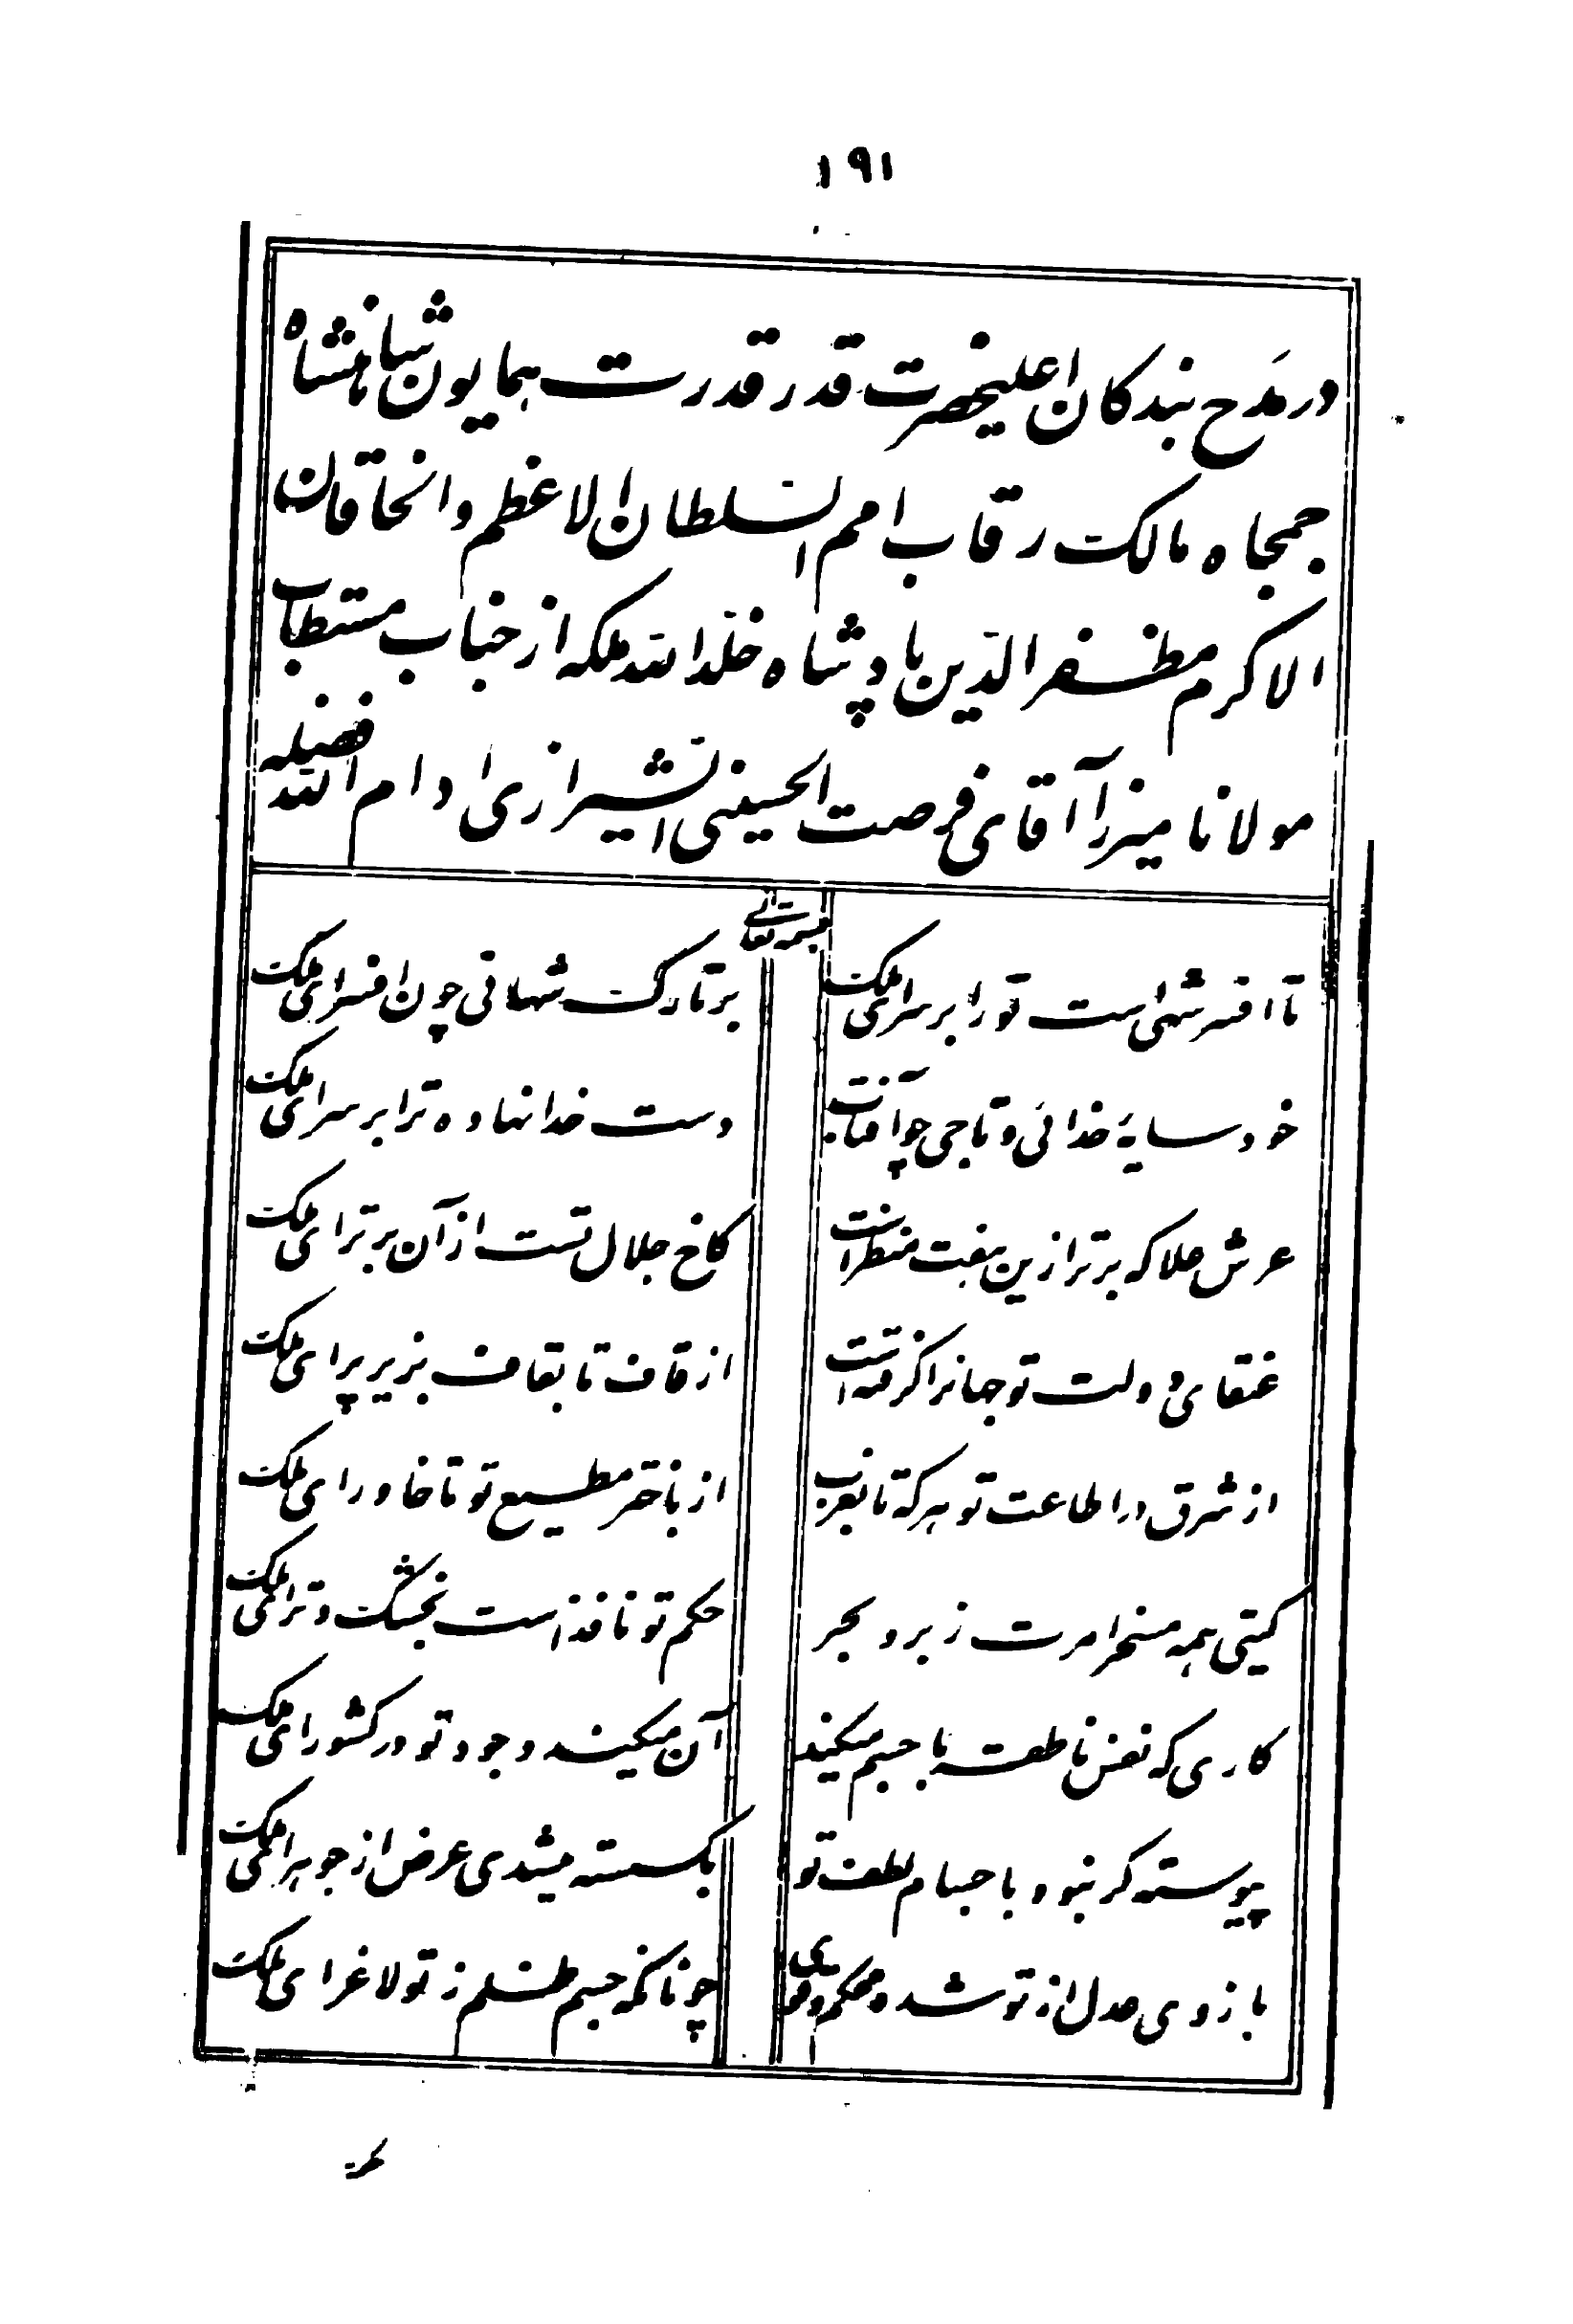 ۱۹۱
در مَدح بندکان اعلیحضرت قدر قدرت همایون شاهنشاه
جمجاه مالک رقاب امم السّلطان الاعظم والخاقان
الاکرم مظفرالدّین پادشاه خلّد الله ملکه از جناب مستطاب
مولانا میرزا آقای فرصت الحسینی الشیرازی ادام الله فضله
تا افسر شهی است تو را بر سر ای ملک بر تارک شهانی چون افسر ای ملک
خود سایهٔ خدائی و تاجی چو آفتاب دست خدا نهاده ترا بر سر ای ملک
عرش علا که برتر ازین هفت منظر است کاخ جلال تست از آن برتر ای ملک
عنقای دولت تو جهانرا گرفته است از قاف تا بقاف بزیر پر ای ملک
از شرق در اطاعت تو هر که تا بغرب از باختر مطیع تو تا خاور ای ملک
کیتی همه مسخر امرت ز بر و بحر حکم تو نافذ است بخشک و تر ای ملک
کاری که نفس ناطقه با جسم میکند آن میکند وجود تو در کشور ای ملک
پیوسته کر نبود باجسام لطف تو بکسسته میشدی عرض از جوهر ای ملک
بازوی عدل از تو شده محکم و قوی چونانکه جسم ظلم ز تو لاغر ای ملک